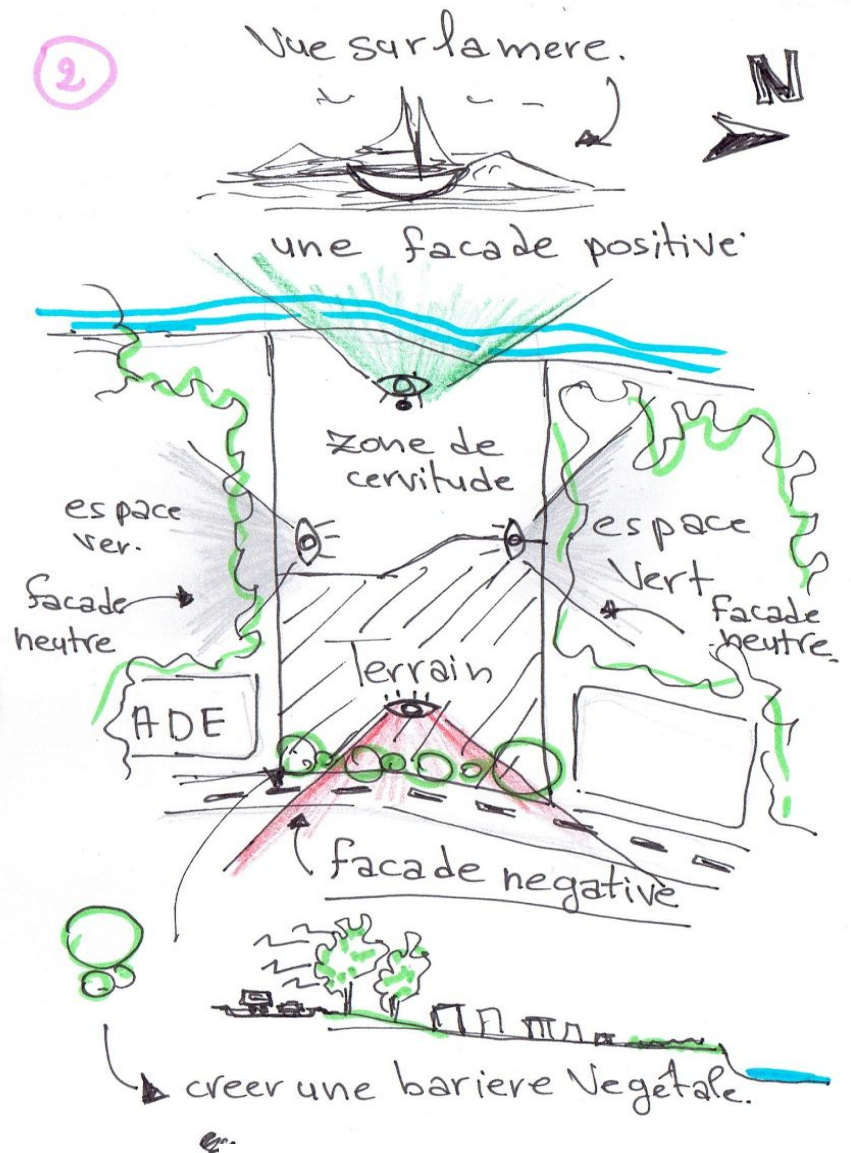 2
Vue sur la mere.
N
une facade positive
zone de
cervitude
espace
ver.
facade
neutre
espace
vert
facade
neutre
Terrain
ADE
facade negative
creer une bariere Vegétale.